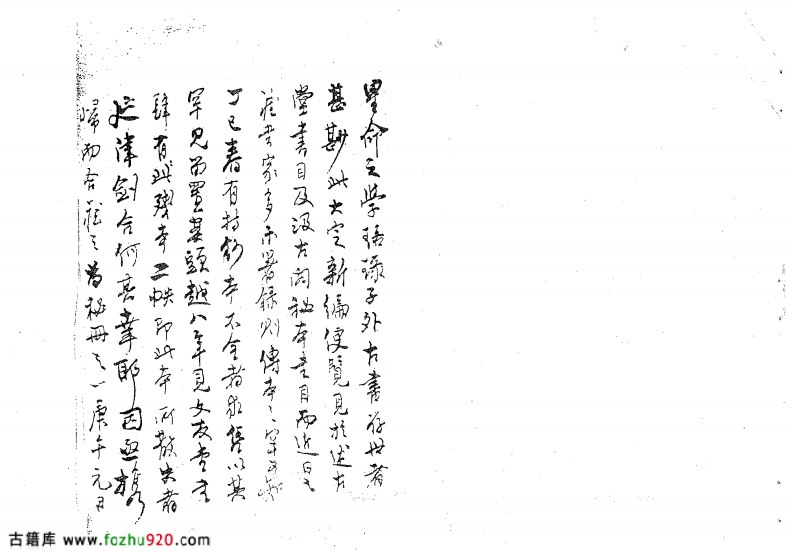 星命之學珞琭子外古書存世者
甚尠此大定新編便覽見於述古
堂書目及汲古閣秘本書目而近世
藏書家多不著錄則傳本之罕可知
丁巳春有持鈔本不全者求售以其
罕見留置案頭越八年見文友堂書
肆有此殘本二帙即此本所散失者
延津劍合何其幸耶因亟
歸而合藏之為秘冊之一庚午元日
古籍库 www.fozhu920.com